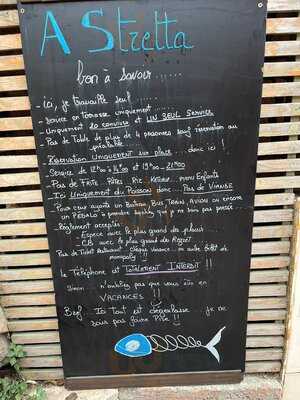 A Stretta
bon à savoir......
- ici, je travaille seul
- service en terrasse uniquement
- Uniquement 20 convives et UN SEUL SERVICE
- Pas de Table de plus de 4 personnes sauf réservation au
préalable
- Réservation Uniquement sur place ... donc ici !
- Service de 12h00 à 14h00 et 19h00 - 21h00
- Pas de Frite Pâtes Riz Ketchup menu Enfants
- Ici Uniquement du Poisson donc ... Pas de Viande
- Pour ceux ayant un Bateau, Bus, Train, Avion ou encore
un Pédalo à prendre sachez que je ne suis pas pressé
- Règlement accepté:
Espèce avec le plus grand des plaisirs
- CB avec le plus grand des Regret
- Pas de Ticket Restaurant Chèque vacance ou autre billet de
monopoly !!
le Téléphone est Totalement Interdit !!
Sinon n'oubliez pas que vous êtes en
VACANCES !!
Bref. Ici tout est dégueulasse je ne
suis pas foutre Pire !!